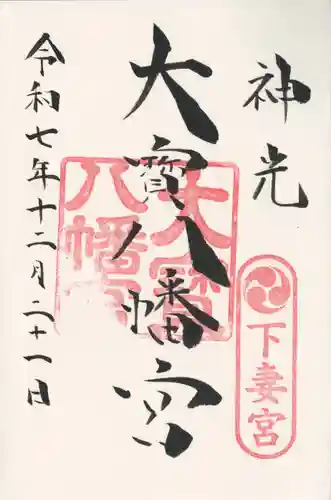 神光
下妻宮
大寳八幡宮
大寳八幡宮
令和七年十二月二十一日